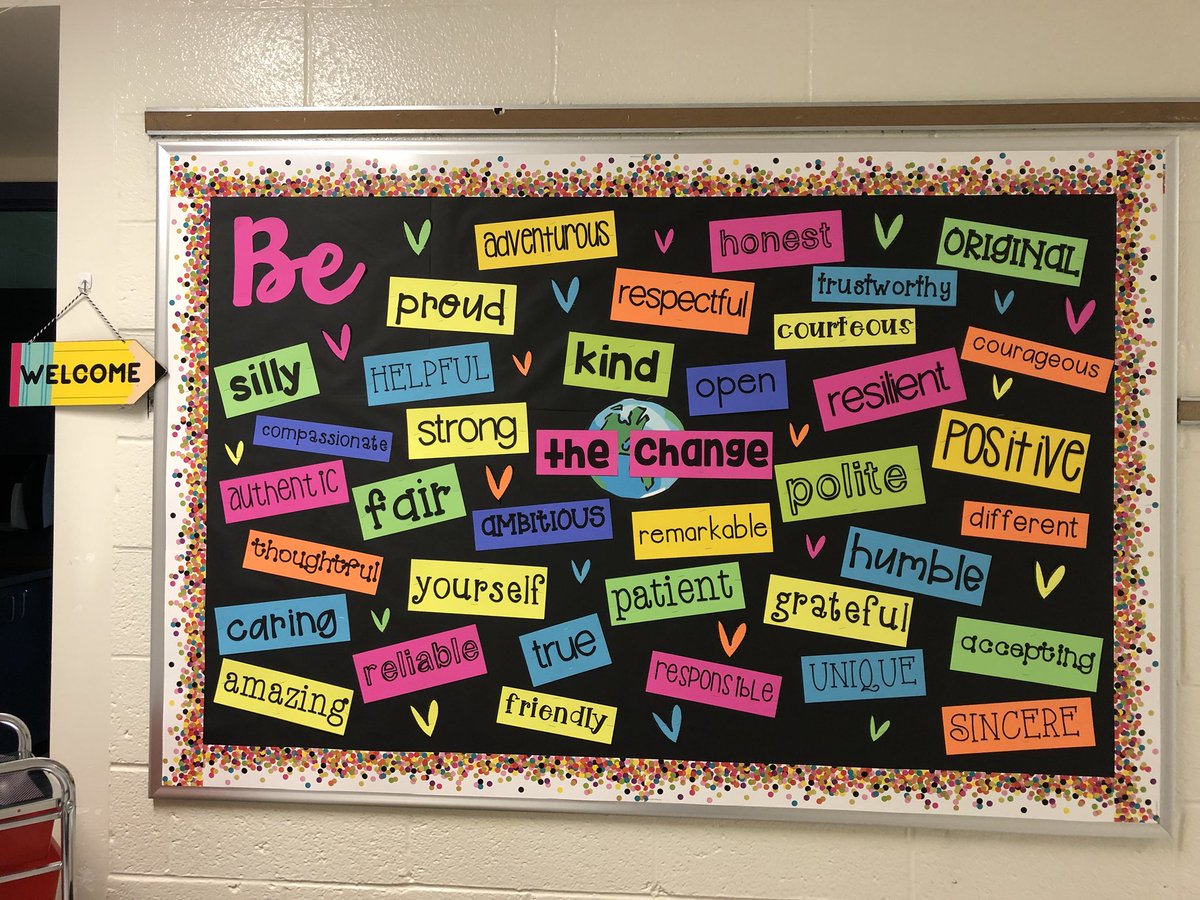 Be
adventurous
honest
ORIGINAL
proud
respectful
trustworthy
courteous
WELCOME
silly
HELPFUL
kind
open
resilient
courageous
compassionate
strong
the Change
POSITIVE
authentic
fair
AMBITIOUS
remarkable
polite
different
thoughtful
yourself
patient
humble
grateful
caring
reliable
true
responsible
UNIQUE
accepting
amazing
friendly
SINCERE